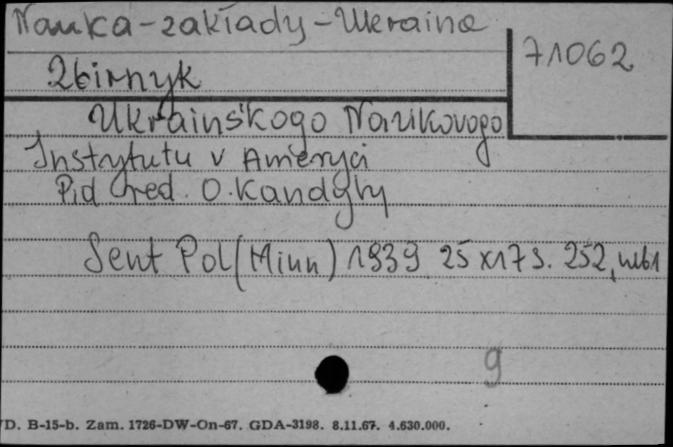 Nauka-zakłady-Ukraina
71062
Zbirnyk
Ukrains'kogo Naukovogo
Instytutu v Ameryci
Pid red. O. Kandyby
Sent Pol (Minn) 1939 25x17 s. 252, nlb1
9
D. B-15-b. Zam. 1726-DW-On-67. GDA-3198. 8.11.67. 4.630.000.